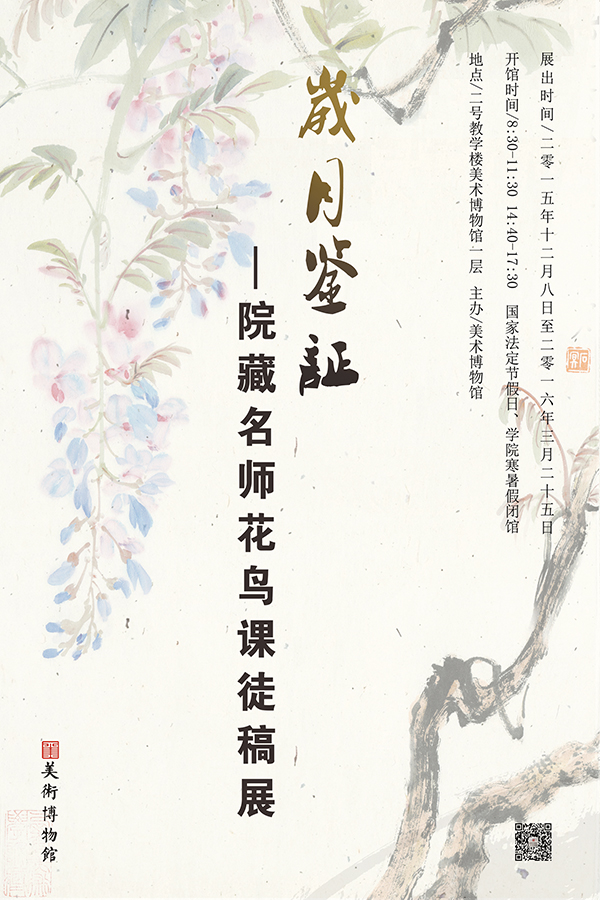 展出时间/二零一五年十二月八日至二零一六年三月二十五日
开馆时间/8:30-11:30 14:40-17:30 国家法定节假日、学院寒暑假闭馆
地点/二号教学楼美术博物馆一层 主办/美术博物馆
歲月鉴証
—院藏名师花鸟课徒稿展
美術博物館